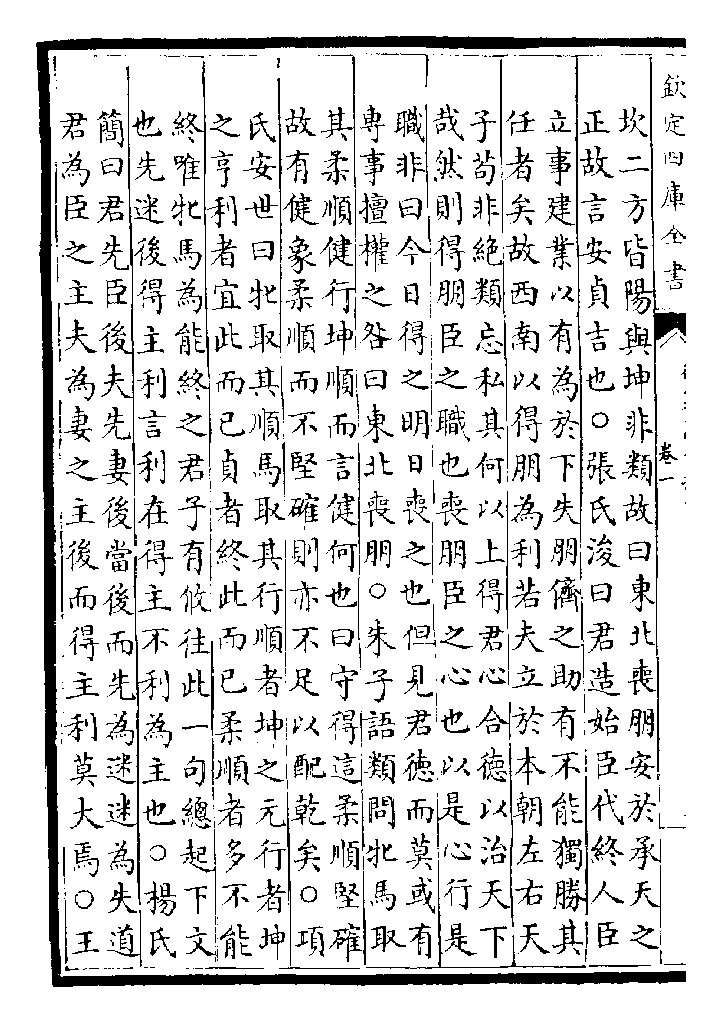 欽定四庫全書
卷一
坎二方皆陽與坤非類故曰東北喪朋安於承天之
正故言安貞吉也○張氏浚曰君造始臣代終人臣
立事建業以有為於下失朋儕之助有不能獨勝其
任者矣故西南以得朋為利若夫立於本朝左右天
子苟非絕類忘私其何以上得君心合德以治天下
哉然則得朋臣之職也喪朋臣之心也以是心行是
職非曰今日得之明日喪之也但見君德而莫或有
専事擅權之咎曰東北喪朋○朱子語類問牝馬取
其柔順健行坤順而言健何也曰守得這柔順堅確
故有健象柔順而不堅確則亦不足以配乾矣○項
氏安世曰牝取其順馬取其行順者坤之元行者坤
之亨利者宜此而已貞者終此而已柔順者多不能
終唯牝馬為能終之君子有攸往此一句總起下文
也先迷後得主利言利在得主不利為主也○楊氏
簡曰君先臣後夫先妻後當後而先為迷迷為失道
君為臣之主夫為妻之主後而得主利莫大焉○王